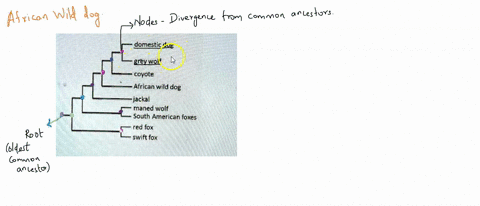 African Wild dog
Nodes - Divergence from common ancestors.
domestic dog
grey wolf
coyote
African wild dog
jackal
maned wolf
South American foxes
red fox
swift fox
Root
(oldest
common
ancestor)